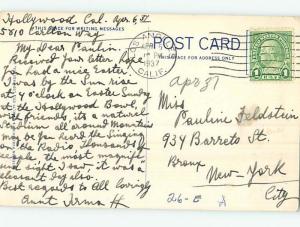 Hollywood Cal. Apr 6, 37
THIS SPACE FOR WRITING MESSAGES
5810 Carlton Way
My Dear Paulin.
Received your letter Hope
you had a nice Easter
I was by the Sun rise
at 5 o'clock on Easter Sunday
at the Hollywood Bowl,
with friends, it's a natural
Stadium all around Mountains
you hear the Singing
on the Radio Thousands of
people, the most magnific
ent sight I saw, it was a
pleasant day also.
Best regards to All lovingly
Aunt Irma H
POST CARD
THIS SPACE FOR ADDRESS ONLY
LOS ANG
APR
PM
1937
CALIF.
1 CENT 1
Apr 37
Miss
Pauline Feldstein
934 Barreto St.
Bronx
New-York
City
26-E A